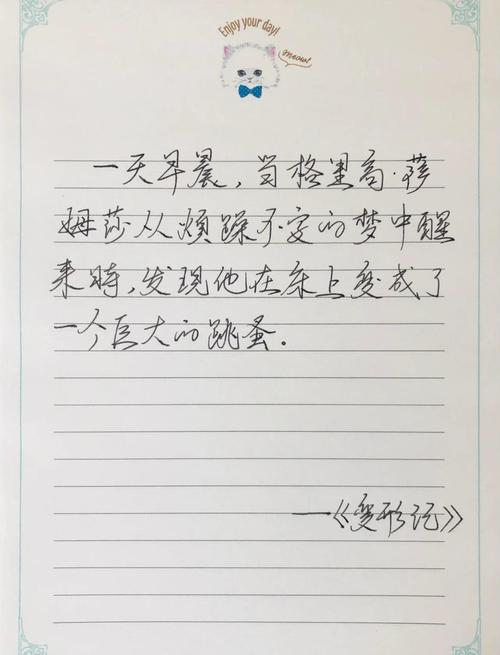 Enjoy your day!
Meow!
一天早晨，当格里高·萨
姆莎从烦躁不安的梦中醒
来时，发现他在床上变成了
一个巨大的跳蚤。
—《变形记》